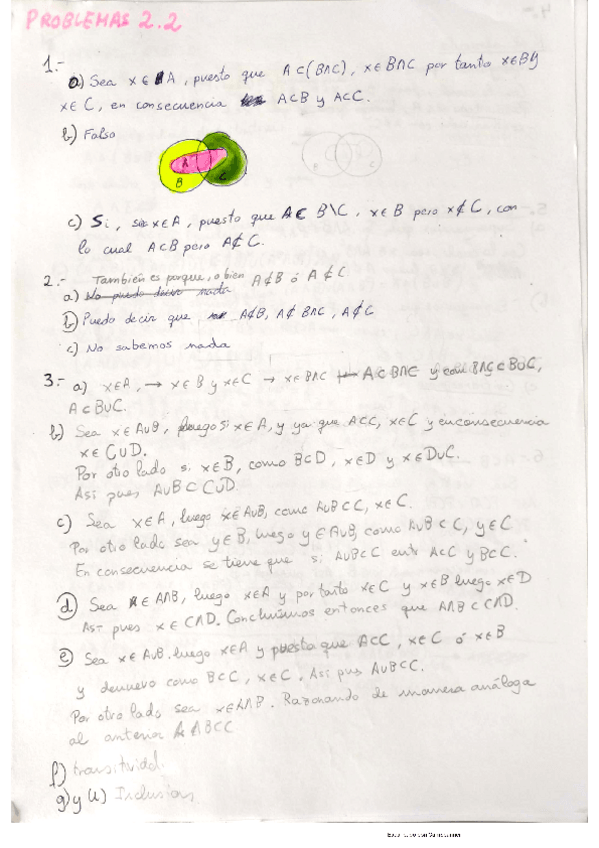 PROBLEMAS 2.2
1.-
a) Sea x∈A, puesto que A⊂(B∩C), x∈B∩C por tanto x∈B y
x∈C, en consecuencia A⊂B y A⊂C.
b) Falso
A
B
C
B
C
c) Si, x∈A, puesto que A⊂B\C, x∈B pero x∉C, con
lo cual A⊂B pero A⊄C.
2.- También es porque, o bien A⊄B ó A⊄C
a) No puedo decir nada
b) Puedo decir que A⊄B, A⊄B∩C, A⊄C
c) No sabemos nada
3.- a) x∈A, → x∈B y x∈C → x∈B∩C A⊂B∩C y como B∩C⊂B∪C,
A⊂B∪C.
b) Sea x∈A∪B, luego si x∈A, y ya que A⊂C, x∈C y en consecuencia
x∈C∪D.
Por otro lado si x∈B, como B⊂D, x∈D y x∈D∪C.
Así pues A∪B⊂C∪D
c) Sea x∈A, luego x∈A∪B, como A∪B⊂C, x∈C.
Por otro lado sea y∈B, luego y∈A∪B, como A∪B⊂C, y∈C
En consecuencia se tiene que si A∪B⊂C A⊂C y B⊂C.
d) Sea x∈A∩B, luego x∈A y por tanto x∈C y x∈B luego x∈D
Así pues x∈C∩D. Concluimos entonces que A∩B⊂C∩D.
e) Sea x∈A∪B luego x∈A y puesto que A⊂C, x∈C ó x∈B
y de nuevo como B⊂C, x∈C. Así pues A∪B⊂C.
Por otro lado sea x∈A∩B. Razonando de manera análoga
al anterior A∩B⊂C
f) transitividad.
g) y h) Inclusión